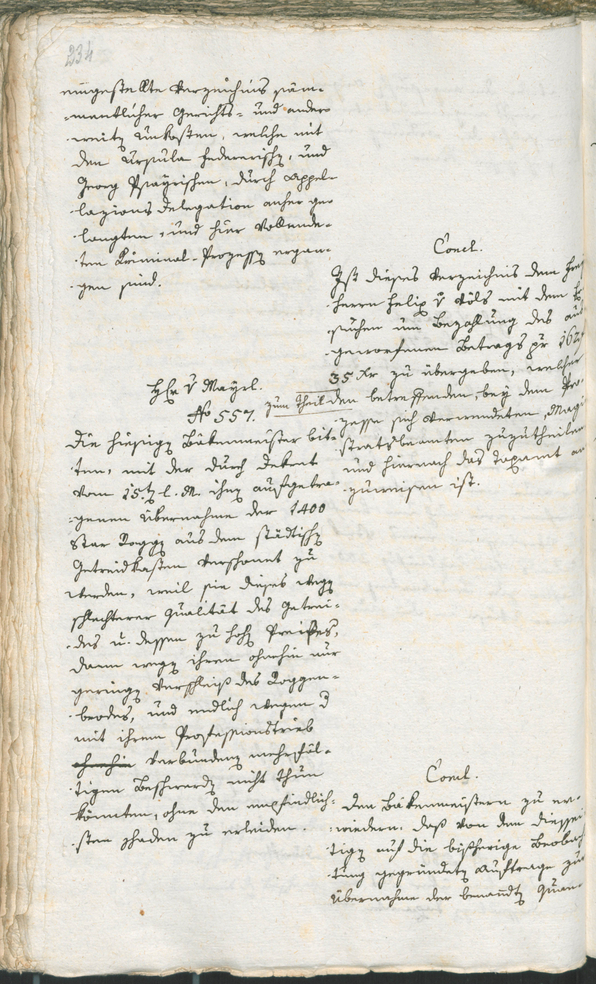 234
eingestellte Verzeichnis säm-
-mentlicher Gerichts- und ander-
-weitig Unkosten, welche mit
den Ursula Federerisch, und
Georg Psayrischen, durch Appel-
lazions Delegation anher ge-
-langten, und hier Vollende-
-ten Kriminal-Prozeß ergan-
-gen sind.
Concl.
Ist dieses Verzeichnis dem
Herrn Felix v Völs mit dem
-suchen um Bezahlung des aus-
-geworfenen Betrags pr 162 f
35 Xr zu übergeben, welcher
zum Theil den betreffenden, bey dem Pro-
-zesse sich verwendeten, Magi-
stratsbeamten zuzutheilen
und hiernach das Taxamt an-
-zuweisen ist.
H v Mayrl.
No 557.
Die hiesige Bäkenmeister bit-
-ten, mit der durch Dekret
vom 15t l. M. ihnen aufgetra-
-genen Übernahme der 1400
Star Rogg aus dem städtisch
Getreidkasten verschonet zu
werden, weil sie dieses weg
schlechterer Qualität des Getrei-
-des u. dessen zu hoh Preises,
dann weg ihrem ohnehin nur
gering Verschleiß des Roggen-
-brodes, und endlich wegen d
mit ihrem Professionstrieb
ohnehin verbunden mehrfäl-
-tigen Beschwerd nicht thun
könnten, ohne den empfindlich-
-sten Schaden zu erleiden.
Concl.
Den Bäkenmeistern zu er-
-wiedern. daß von dem diessei-
-tig auf die bisherige Beobach-
-tung gegründet Auftrage zur
Übernahme der benannt Quan-